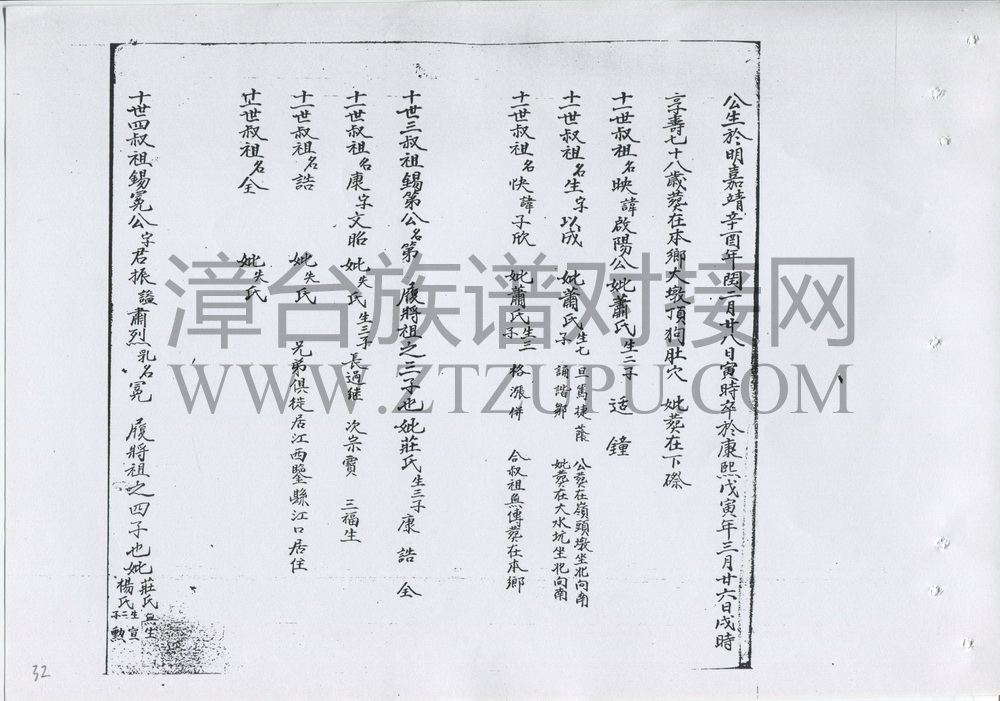 公生於明嘉靖辛酉年閏二月廿八日寅時卒於康熙戊寅年三月廿六日戌時
享壽七十八歲葬在本鄉大墩頂狗肚穴 妣葬在下磜
十一世叔祖名映諱啟陽公妣蕭氏生二子 适 鐘
十一世叔祖名生字以成 妣蕭氏生七子 旦篤捷 誦諧鄒 公葬在嶺頭墩坐北向南 妣葬在大水坑坐北向南
十一世叔祖名快諱子欣 妣蕭氏生三子 格漲併 合叔祖無傳葬在本鄉
十世三叔祖錫第公名第 履將祖之三子也妣莊氏生三子康 誥 全
十一世叔祖名康字文昭 妣失氏生三子 長過继 次崇賣 三福生
十一世叔祖名誥 妣失氏 兄弟俱徙居江西鑒縣江口居住
十一世叔祖名全 妣失氏
十世四叔祖錫冕公字君振謚肅烈乳名冕 履將祖之四子也妣莊氏無生 楊氏生二子宣 勲
32
漳台族谱对接网
WWW.ZTZUPU.COM